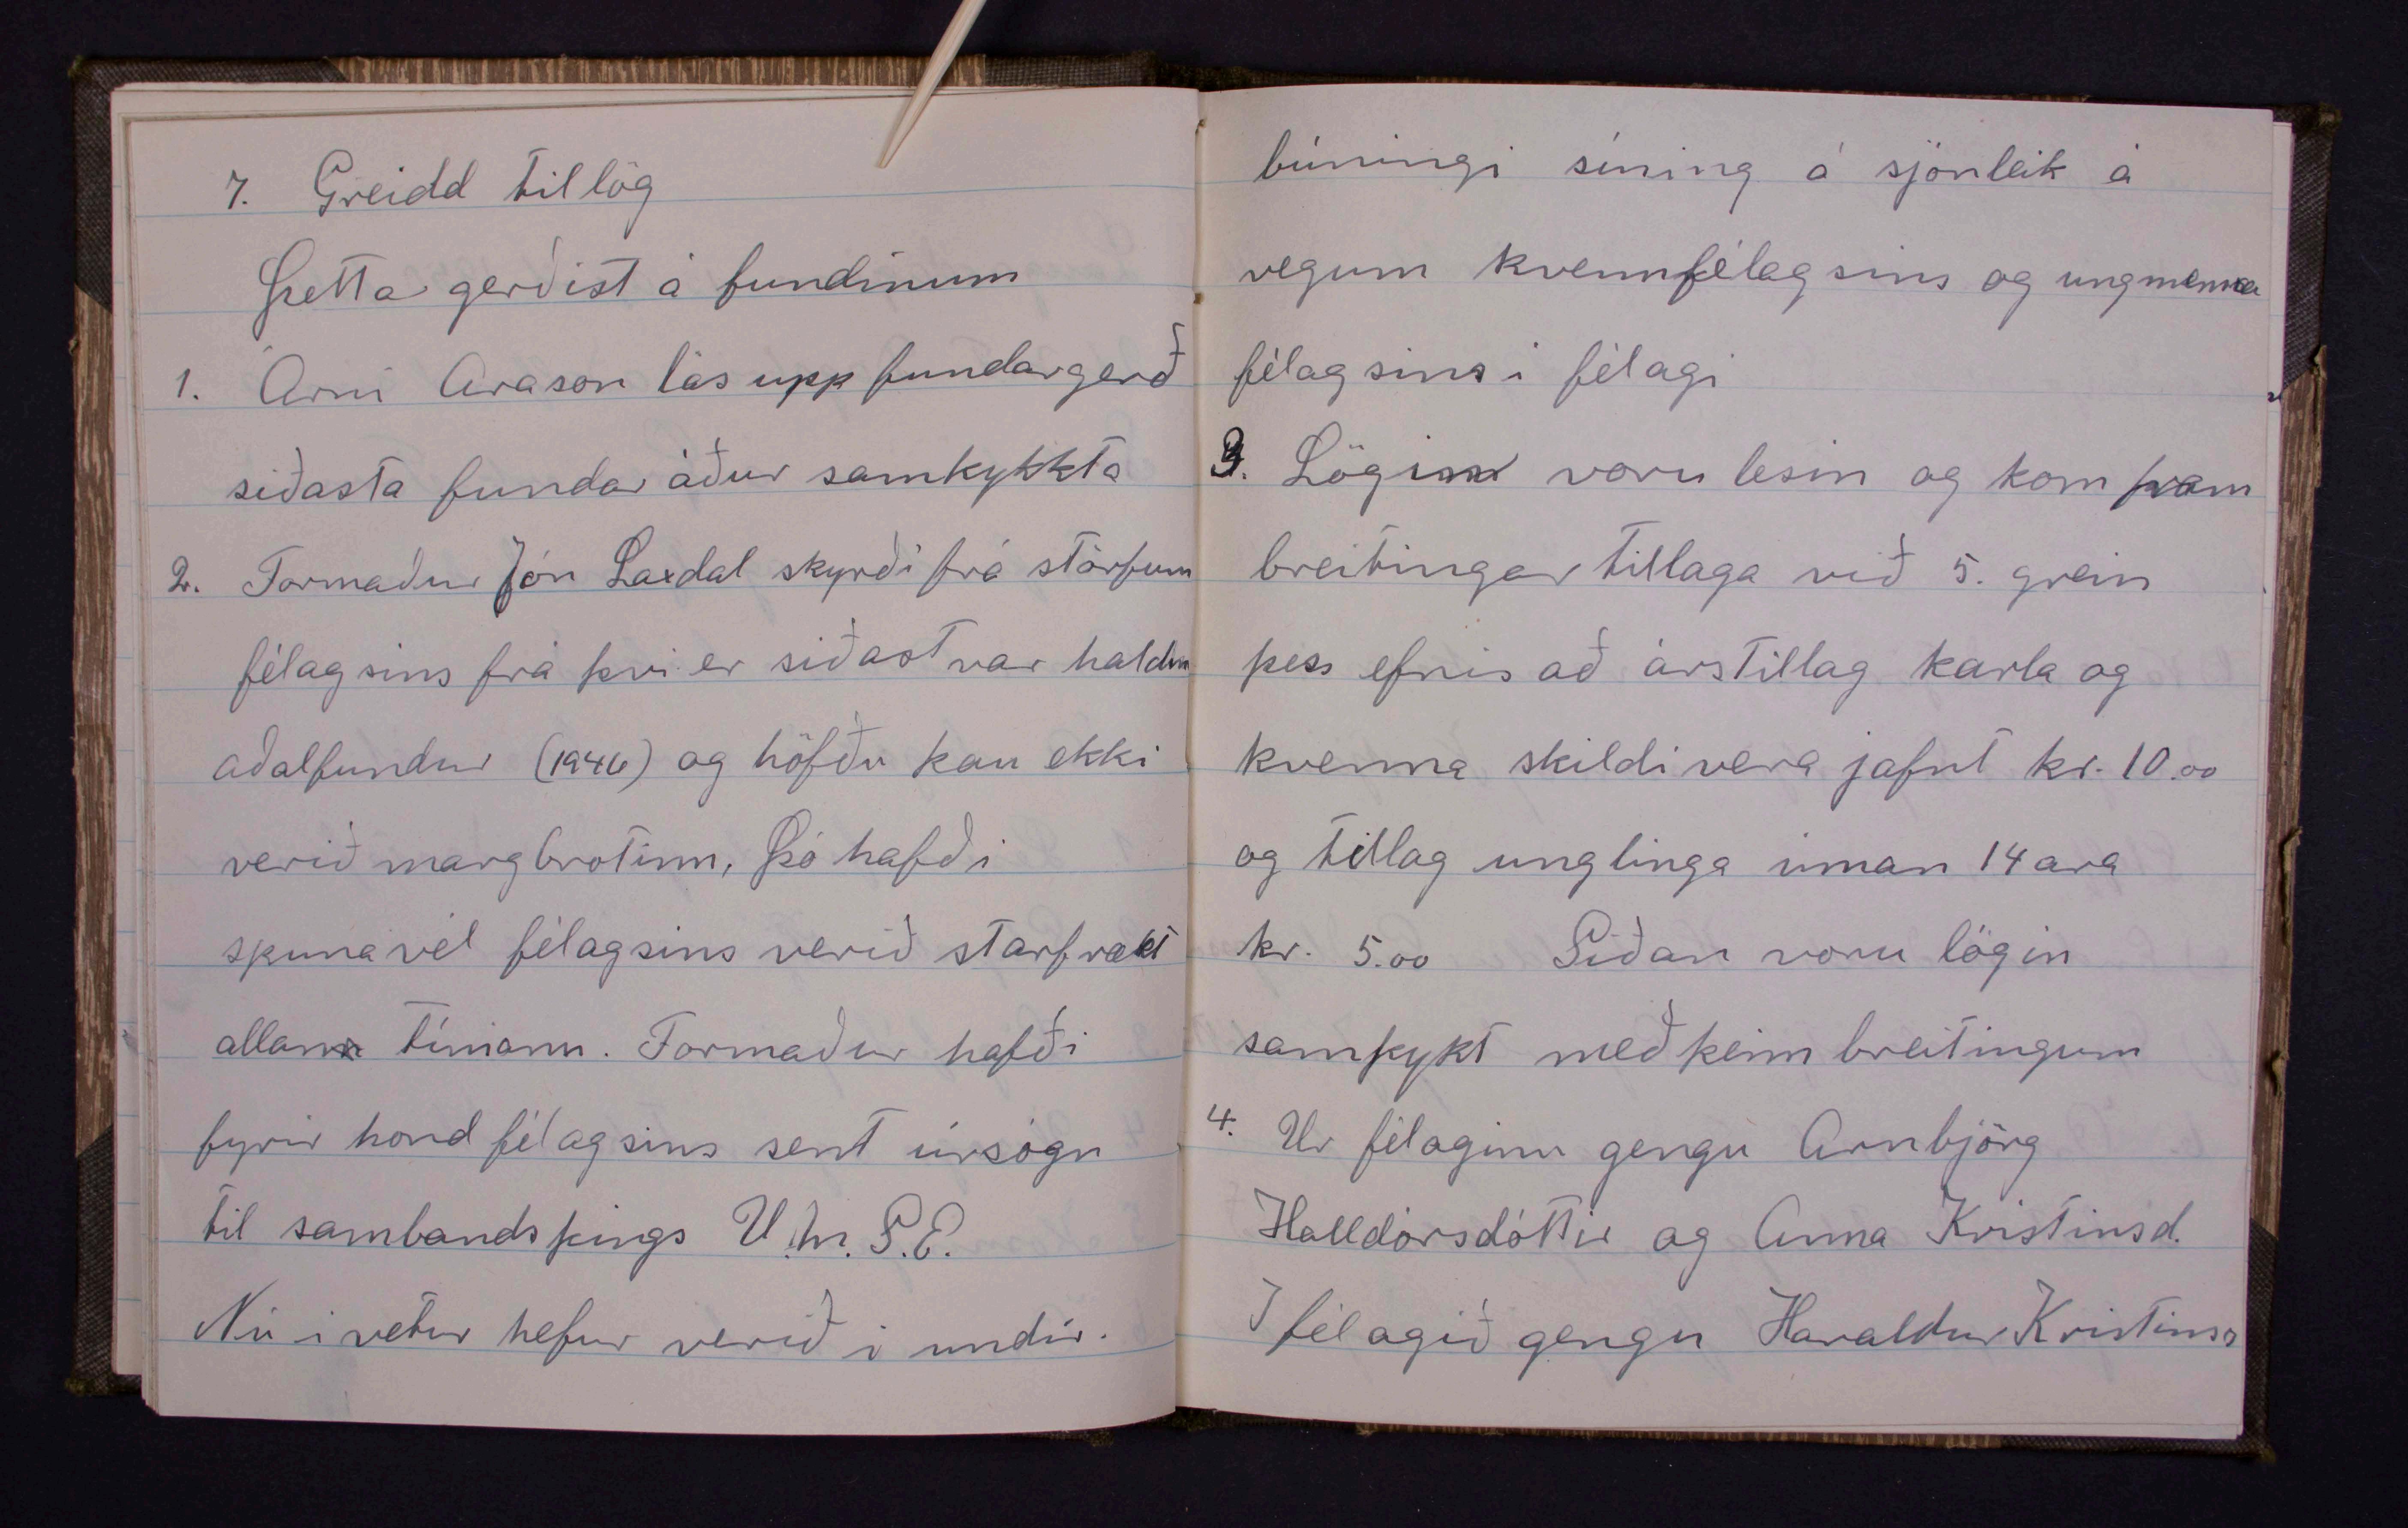 7. Greidd tillög
Þetta gerðist á fundinum
1. Árni Arason lás upp fundargerð
siðasta fundar áður samþykkta
2. Formaður Jón Laxdal skyrði frá störfum
félagsins frá þvi er siðast var haldin
aðalfundur (1946) og höfðu þau ekki
verið margbrotinn, Þó hafði
spunavél félagsins verið starfrækt
allann tímann. Formaður hafði
fyrir hond félagsins sent úrsögn
til sambandsþings U.M.S.E.
Nú i vetur hefur verið i undir-
búningi síning á sjónleik á
vegum kvennfélagsins og ungmenna
félagsins i félagi
3. Lögin voru lesin og kom fram
breitingar tillaga við 5. grein
þess efnis að árstillag karla og
kvenna skildi vera jafnt kr. 10.00
og tillag unglinga innan 14 ara
kr. 5.00 Siðan voru lögin
samþykt með þeim breitingum
4. Ur félaginu gengu Arnbjörg
Halldórsdóttir og Anna Kristinsd.
I félagið gengu Haraldur Kristinss